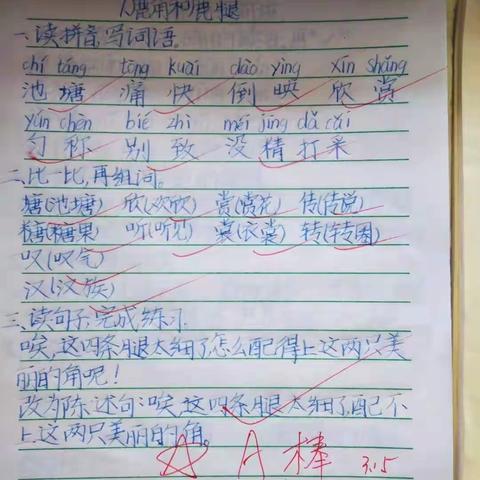 鹿角和鹿腿
一、读拼音,写词语。
chí táng tòng kuài dào yìng xīn shǎng
池塘 痛快 倒映 欣赏
yún chèn bié zhì méi jīng dǎ cǎi
匀称 别致 没精打采
二、比一比,再组词。
塘(池塘) 欣(欢欣) 赏(赏花) 传(传说)
糖(糖果) 听(听见) 裳(衣裳) 转(转圈)
叹(叹气)
汉(汉族)
三、读句子,完成练习。
唉,这四条腿太细了,怎么配得上这两只美
丽的角呢!
改为陈述句:唉,这四条腿太细了,配不
上这两只美丽的角。
A 棒 3.15